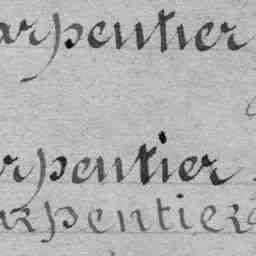 arpentier
rpentier
arpentier